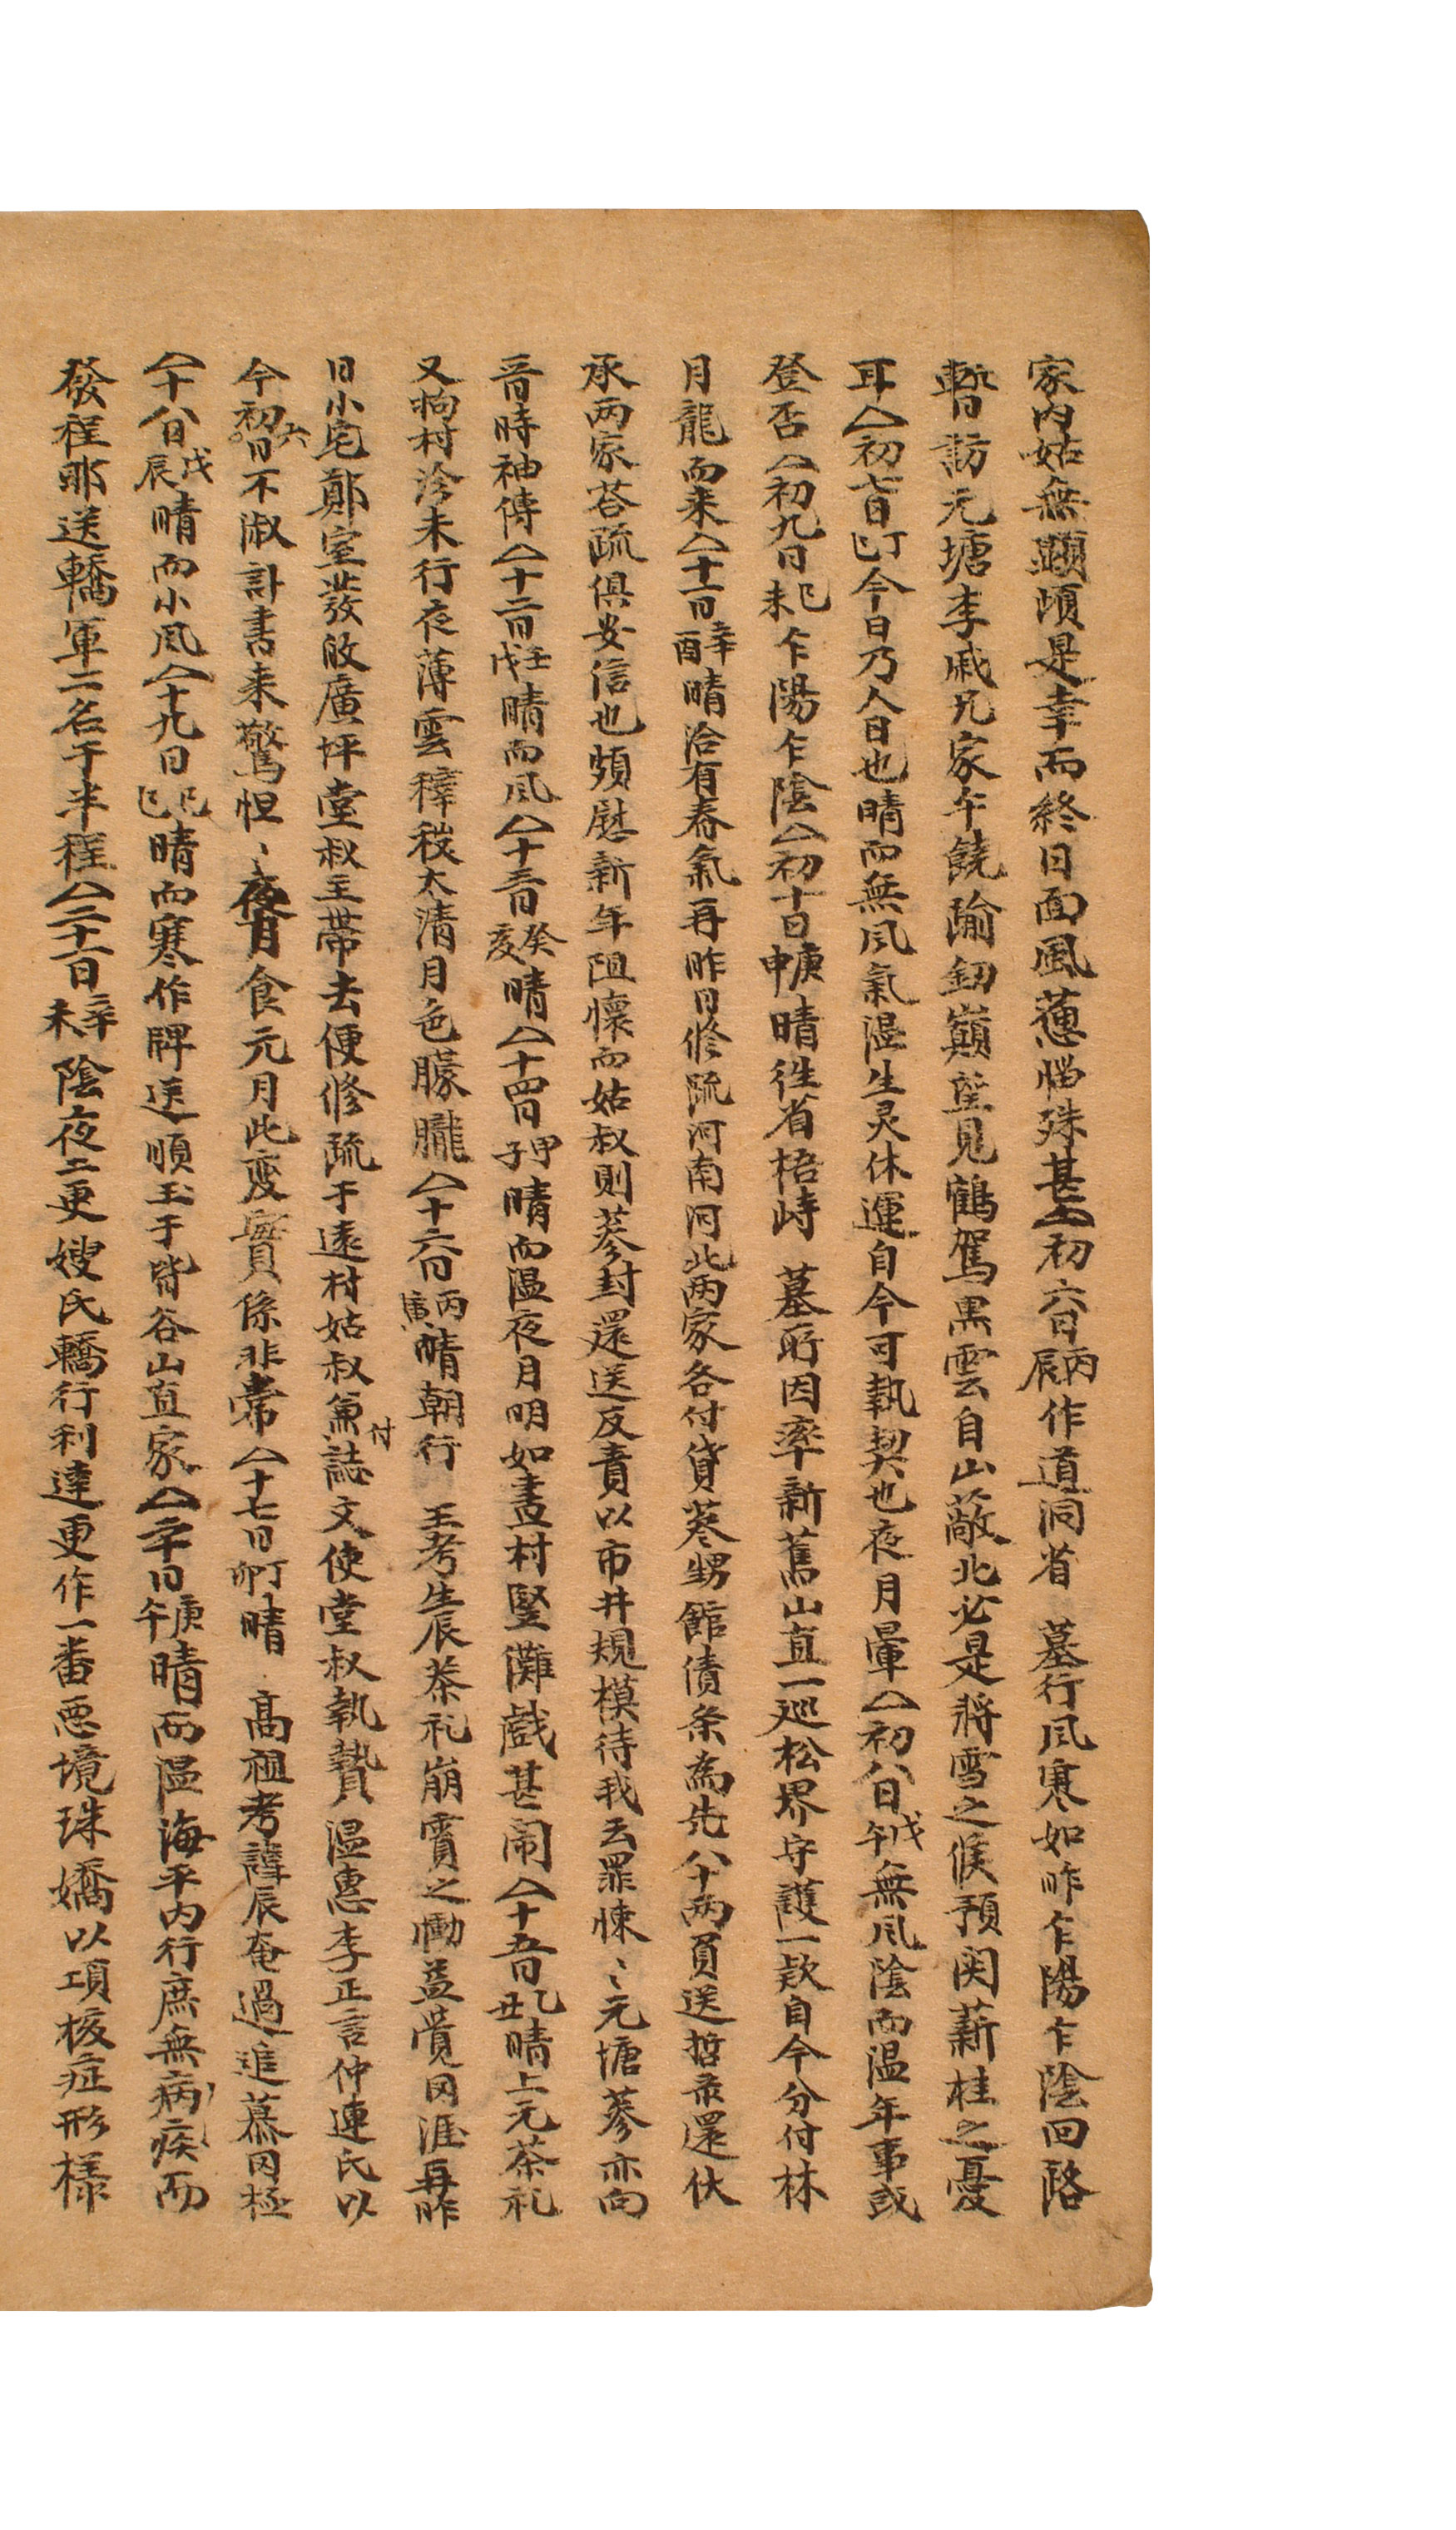 家内姑無顕頉是幸而終日面風蓫惱殊甚△初六日丙辰作道洞省 墓行風寒如昨乍陽乍陰回路
暫訪元塘李戚兄家午饒踰釖巔望見鶴駕黒雲自山蔽北必是將雪之候預関薪桂之憂
耳△初七日丁巳今日乃人日也晴而無風氣湿生灵休運自今可執契也夜月暈△初八日戊午無風陰而温年事或
登否△初九日己未乍陽乍陰△初十日庚申晴徃省梧峙 墓所因率新舊山直一巡松界守護一款自今分付林
月龍而来△十一日辛酉晴洽有春氣再昨日修疏河南河北两家各付貸蔘甥館債条為先八十两負送哲彔還伏
承两家荅疏俱安信也頗慰新年阻懷而姑叔則蔘封還送反責以市井規模待我云罪悚〻元塘蔘亦向
晉時袖傳△十二日壬戌晴而風△十三日癸亥晴△十四日甲子晴而温夜月明如晝村竪儺戱甚閙△十五日乙丑晴上元茶礼
又拘村沴未行夜薄雲穉秾太清月色朦朧△十六日丙寅晴朝行 王考生辰茶礼崩霣之慟益覺罔涯再昨
日小宅鄭室發敀廣坪堂叔主帶去便修疏于遠村姑叔兼付誌文使堂叔執贄温惠李正言仲連氏以
今初六日不淑訃書来驚怛〻夜月食元月此変實係非常△十七日丁卯晴 高祖考諱辰奄過追慕罔極
△十八日戊辰晴而小風△十九日己巳晴而寒作牌送順玉于皆谷山直家△二十日庚午晴而温海平内行庶無病疾而
發程郎送轎軍二名于半程△二十一日辛未陰夜二更嫂氏轎行利達更作一番悪境珠嬌以項核症形樣